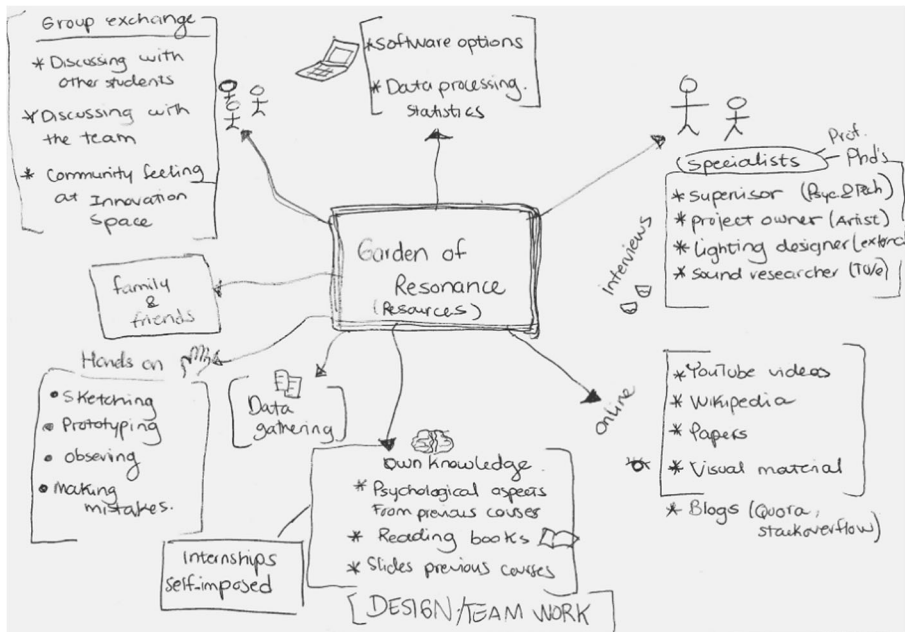 Group exchange
* Discussing with
other students
* Discussing with
the team
* Community feeling
at Innovation
Space
* Software options
* Data processing.
statistics
Prof.
Phd's
Specialists
* supervisor (Psyc&Tech)
* project owner (Artist)
* Lighting designer (extend
* sound researcher (TU/e)
Interviews
Garden of
Resonance
(Resources)
family
&
friends
Hands on
• Sketching
• Prototyping
• obseving
• Making
mistakes.
Data
gathering
own knowledge.
* Psychological aspects
From previous courses
* Reading books
* Slides previous courses
Internships
self-imposed
[DESIGN/TEAM WORK]
Online
* YouTube videos
* Wikipedia
* Papers
* Visual material
* Blogs (Quora,
stackoverflow)